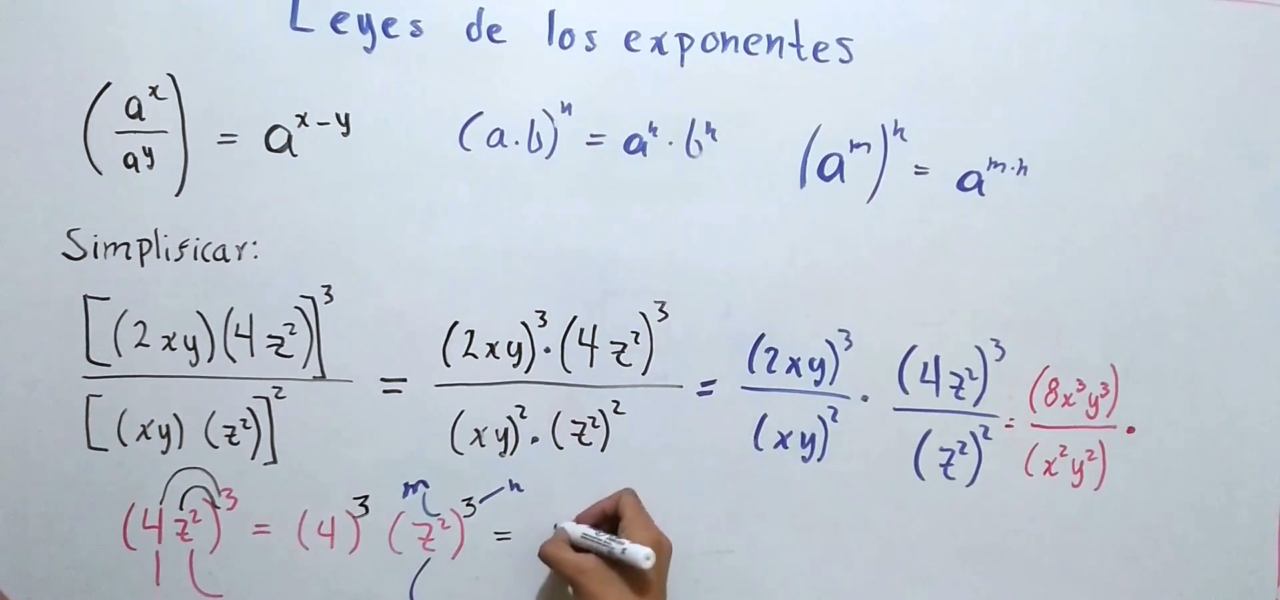 Leyes de los exponentes
(a^x / a^y) = a^(x-y)   (a·b)^n = a^n · b^n   (a^m)^n = a^(m·n)
Simplificar:
[(2xy)(4z²)]³ / [(xy)(z²)]² = (2xy)³·(4z²)³ / (xy)²·(z²)² = (2xy)³ / (xy)² · (4z²)³ / (z²)² = (8x³y³) / (x²y²) ·
(4z²)³ = (4)³ (z²)³ =
m n